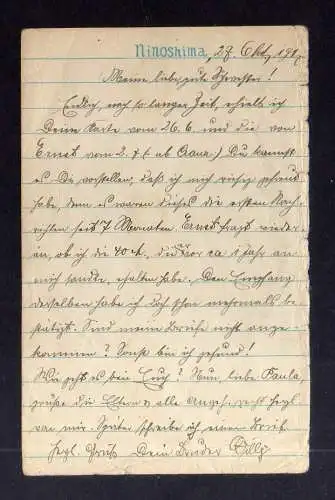 Ninoshima, 27. Okt. 191
Meine liebe, gute Schwester!
Endlich, nach so langer Zeit, erhielt ich
Deine Karte vom 26.6. und die von
Ernst vom 2. ab Du kannst
es Dir vorstellen, daß ich mich riesig gefreut
habe, denn es waren dieses die ersten Nach-
richten seit 7 Monaten. Ernst fragt wieder
an, ob ich die 40 M. die er vor ca 1 Jahr an
mich sandte, erhalten habe. Den Empfang
derselben habe ich doch schon mehrmals be-
stätigt. Sind meine Briefe nicht ange-
kommen? Sonst bin ich gesund!
Wie geht es bei Euch? Nun, liebe Paula,
grüße die Eltern u. alle Angeh. recht herzl.
von mir. Später schreibe ich einen Brief.
Herzl. Gruß Dein Bruder Willy